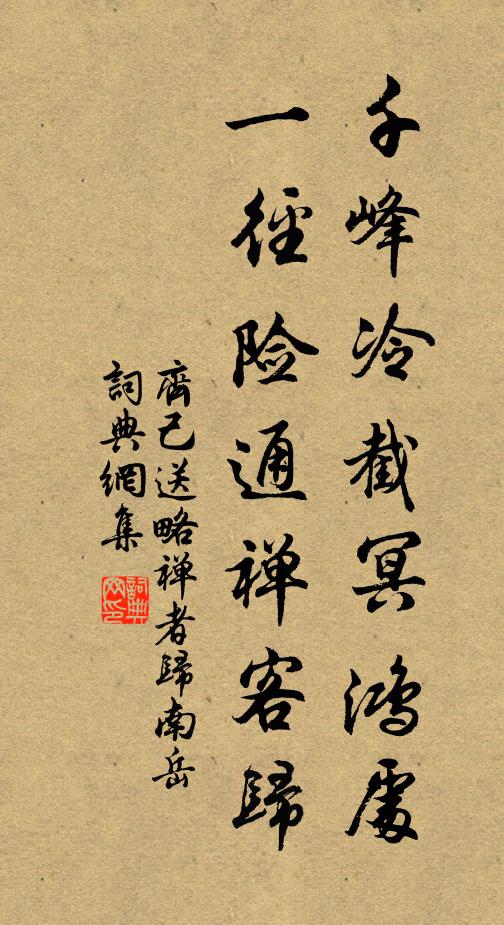 千峰冷截冥鸿處
一徑险通禅客歸
齊己送略禅者歸南岳
詞典網集
詞典网印